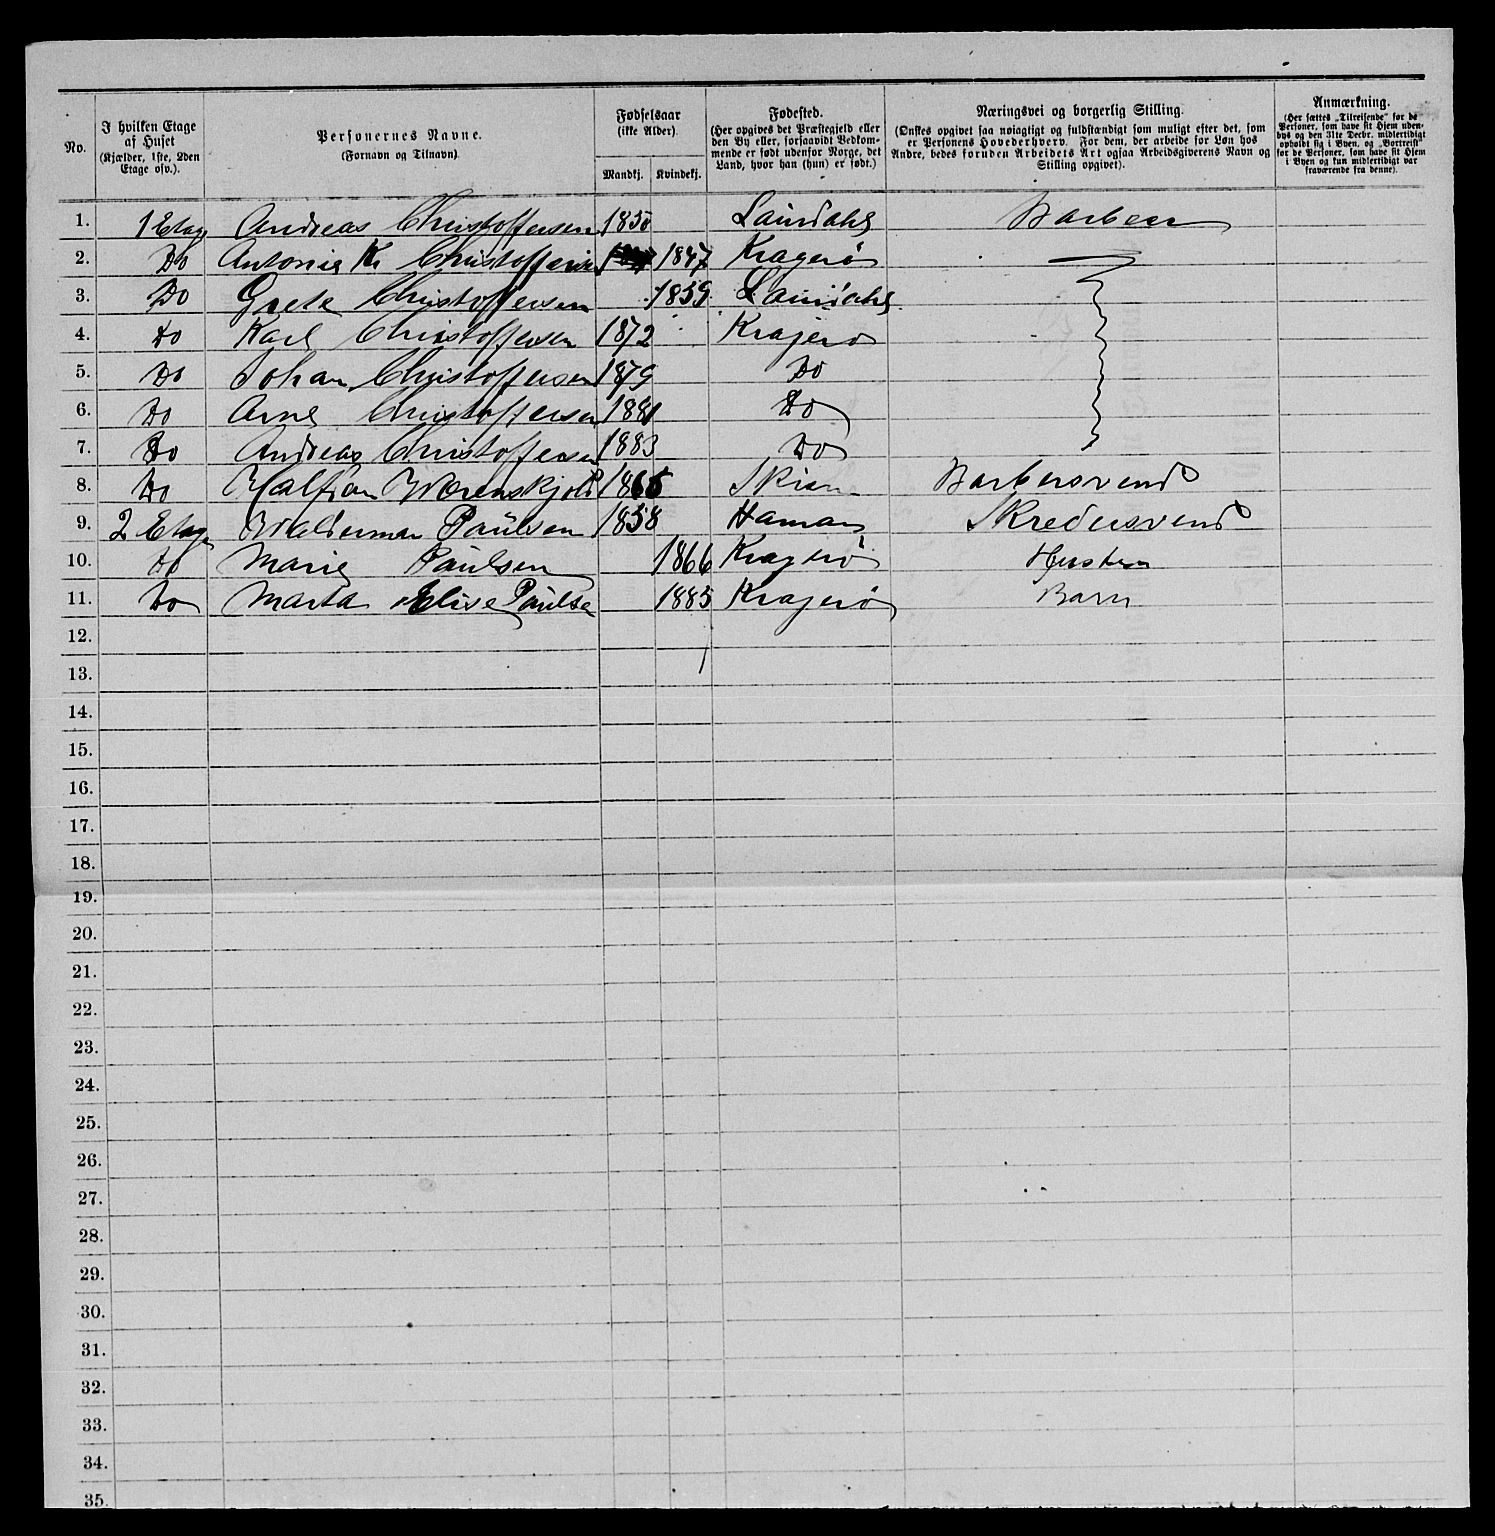 No.
I hvilken Etage af Huset (Kjælder, 1ste, 2den Etage osv.).
Personernes Navne. (Fornavn og Tilnavn)
Fødselsaar (ikke Alder)
Mandkj. Kvindekj.
Fødested. (Her opgives det Præstegjeld eller den By eller, forsaavidt Vedkommende er født udenfor Norge, det Land, hvor han (hun) er født.)
Næringsvei og borgerlig Stilling. (Ønskes opgivet saa nøiagtigt og fuldstændigt som muligt efter det, som er Personens Hovederhverv. For dem, der arbeide for Løn hos Andre, bedes foruden Arbeidets Art ogsaa Arbeidsgiverens Navn og Stilling opgivet).
Anmærkning. (Her sættes „Tilreisende“ for de Personer, som have sit Hjem udenbys og den 31te Decbr. midlertidigt opholdt sig i Byen, og „Bortreist“ for de Personer, som have sit Hjem i Byen og kun midlertidigt var fraværende fra denne).
1. 1 Etage Andreas Christoffersen 1850 Laurdahl Barbeer
2. Do Antonie Kr Christoffersen 1847 Kragerø
3. Do Grete Christoffersen 1859 Laurdahl
4. Do Karl Christoffersen 1872 Krajerø
5. Do Johan Christoffersen 1879 Do
6. Do Arne Christoffersen 1881 Do
7. Do Andreas Christoffersen 1883 Do
8. Do Halfdan Wærenskjold 1865 Skien Barbersvend
9. 2 Etage Waldermar Paulsen 1858 Hamar Skredersvend
10. Do Marie Paulsen 1866 Kragerø Hustru
11. Do Marta Elise Paulse 1885 Krajerø Barn
12.
13.
14.
15.
16.
17.
18.
19.
20.
21.
22.
23.
24.
25.
26.
27.
28.
29.
30.
31.
32.
33.
34.
35.